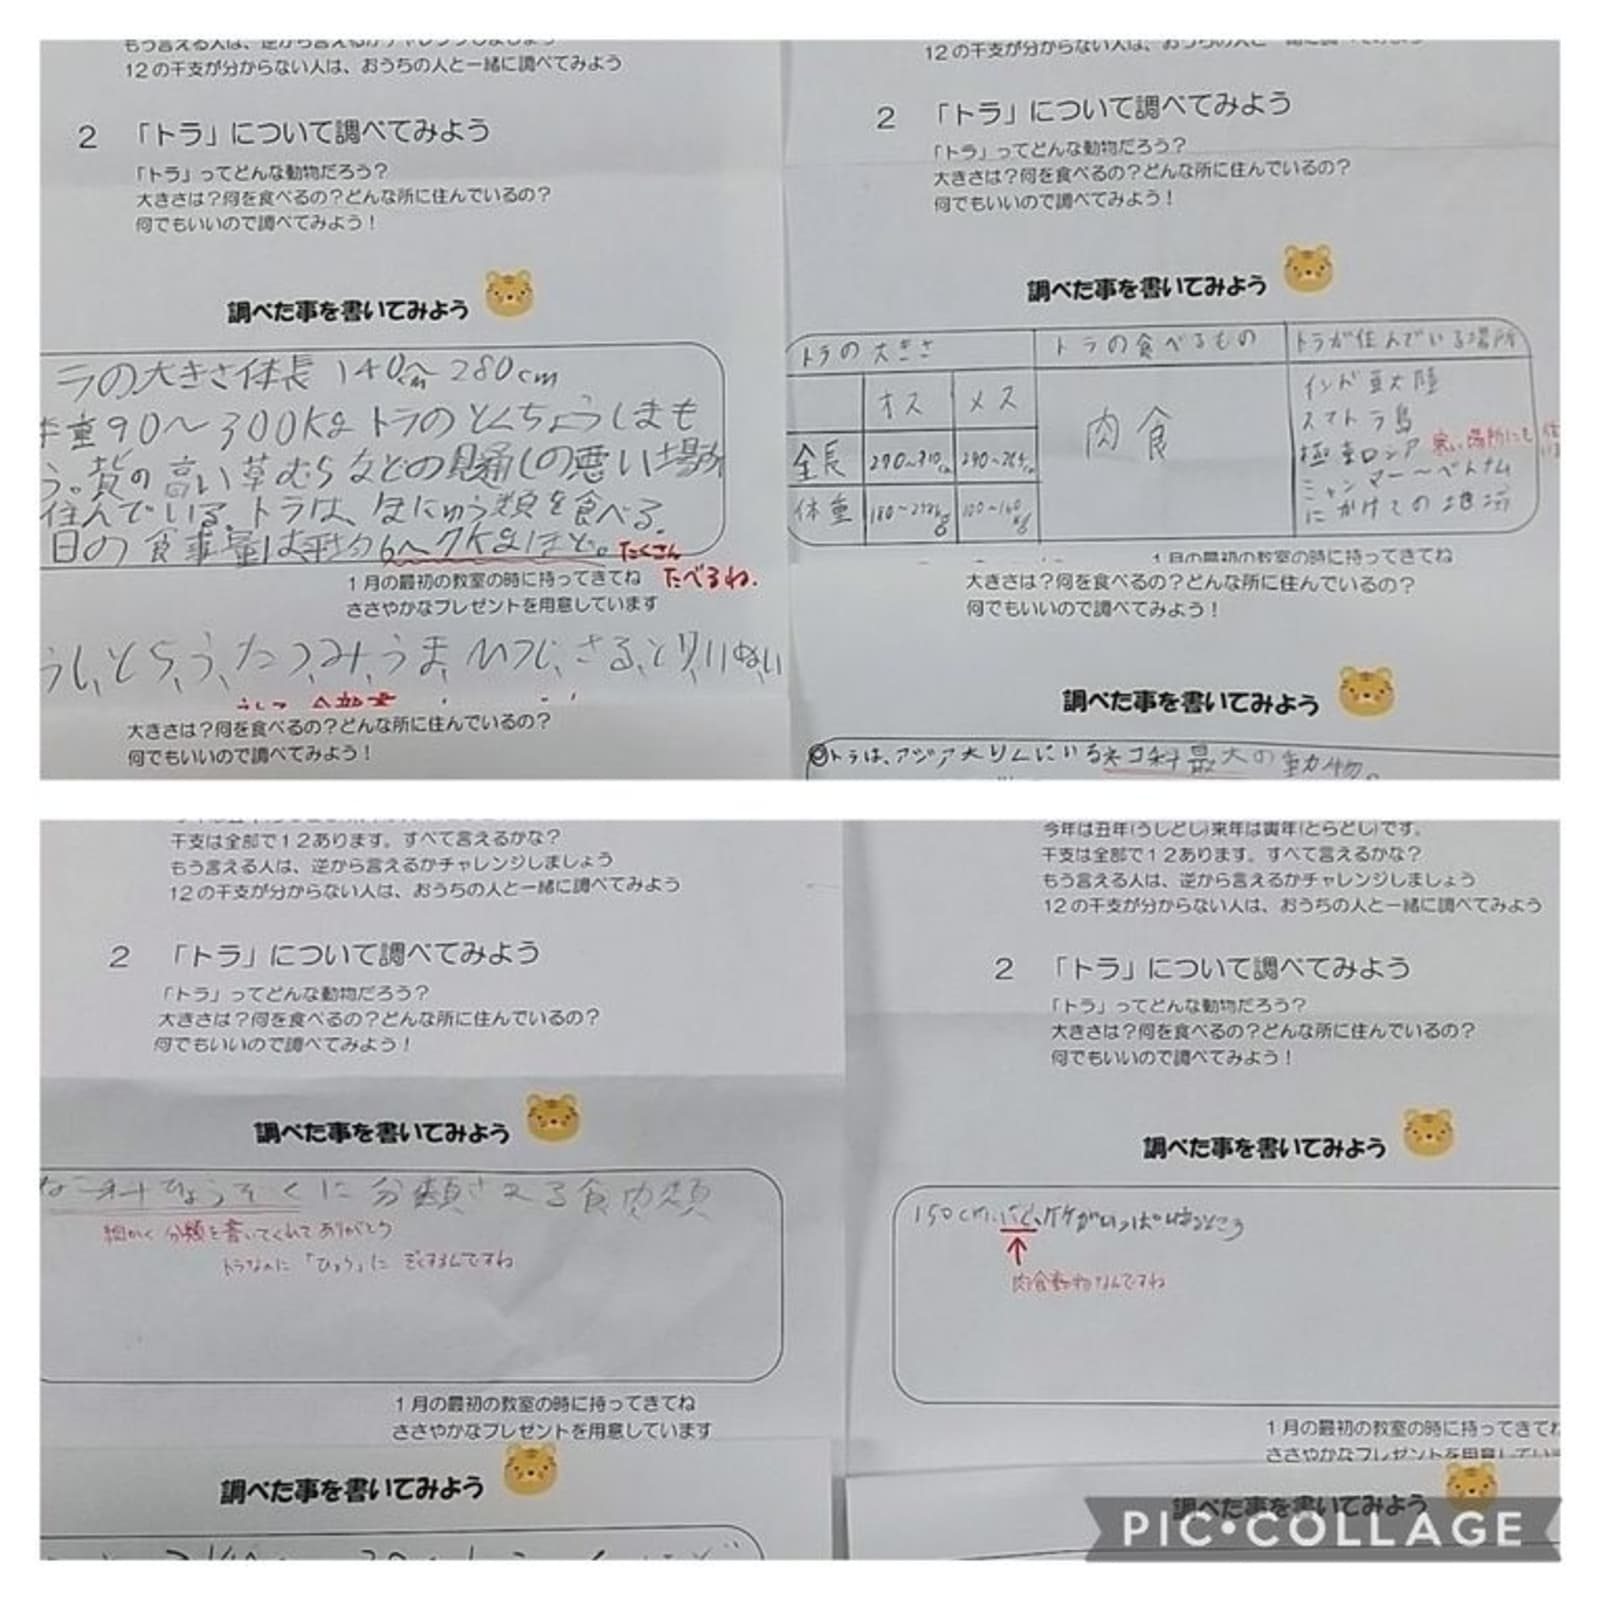 12の干支が分からない人は、おうちの人と一緒に調べてみよう
2 「トラ」について調べてみよう
「トラ」ってどんな動物だろう?
大きさは?何を食べるの?どんな所に住んでいるの?
何でもいいので調べてみよう!
調べた事を書いてみよう
ラの大きさ体長140cm〜280cm
体重90〜300kgトラのとくちょうしまも
う。背の高い草むらなどの見通しの悪い場所
住んでいる。トラは、ほにゅう類を食べる。
日の食事量は平均6〜7kgほど。たくさん
たべるね.
1月の最初の教室の時に持ってきてね
ささやかなプレゼントを用意しています
うし、とら、う、たつ、み、うま、ひつじ、さる、とり、いぬ、い
大きさは?何を食べるの?どんな所に住んでいるの?
何でもいいので調べてみよう!
12の干支が分からない人は、おうちの人と一緒に調べてみよう
2 「トラ」について調べてみよう
「トラ」ってどんな動物だろう?
大きさは?何を食べるの?どんな所に住んでいるの?
何でもいいので調べてみよう!
調べた事を書いてみよう
トラの大きさ トラの食べるもの トラが住んでいる場所
オス メス
全長
体重
肉食
インド亜大陸
スマトラ島
極東ロシア 寒い場所にも
ミャンマー〜ベトナム
にかけての地域
1月の最初の教室の時に持ってきてね
大きさは?何を食べるの?どんな所に住んでいるの?
何でもいいので調べてみよう!
調べた事を書いてみよう
◎トラは、アジア大りくにいるネコ科最大の動物。
干支は全部で12あります。すべて言えるかな?
もう言える人は、逆から言えるかチャレンジしましょう
12の干支が分からない人は、おうちの人と一緒に調べてみよう
2 「トラ」について調べてみよう
「トラ」ってどんな動物だろう?
大きさは?何を食べるの?どんな所に住んでいるの?
何でもいいので調べてみよう!
調べた事を書いてみよう
ねこ科ひょうぞくに分類される食肉類
細かく分類を書いてくれてありがとう
トラなのに「ひょう」にぞくするんですね
1月の最初の教室の時に持ってきてね
ささやかなプレゼントを用意しています
調べた事を書いてみよう
今年は丑年(うしどし)来年は寅年(とらどし)です。
干支は全部で12あります。すべて言えるかな?
もう言える人は、逆から言えるかチャレンジしましょう
12の干支が分からない人は、おうちの人と一緒に調べてみよう
2 「トラ」について調べてみよう
「トラ」ってどんな動物だろう?
大きさは?何を食べるの?どんな所に住んでいるの?
何でもいいので調べてみよう!
調べた事を書いてみよう
150cm
肉食動物なんですね
1月の最初の教室の時に持ってきてね
ささやかなプレゼントを用意してい
調べた事を書いてみよう
PIC•COLLAGE